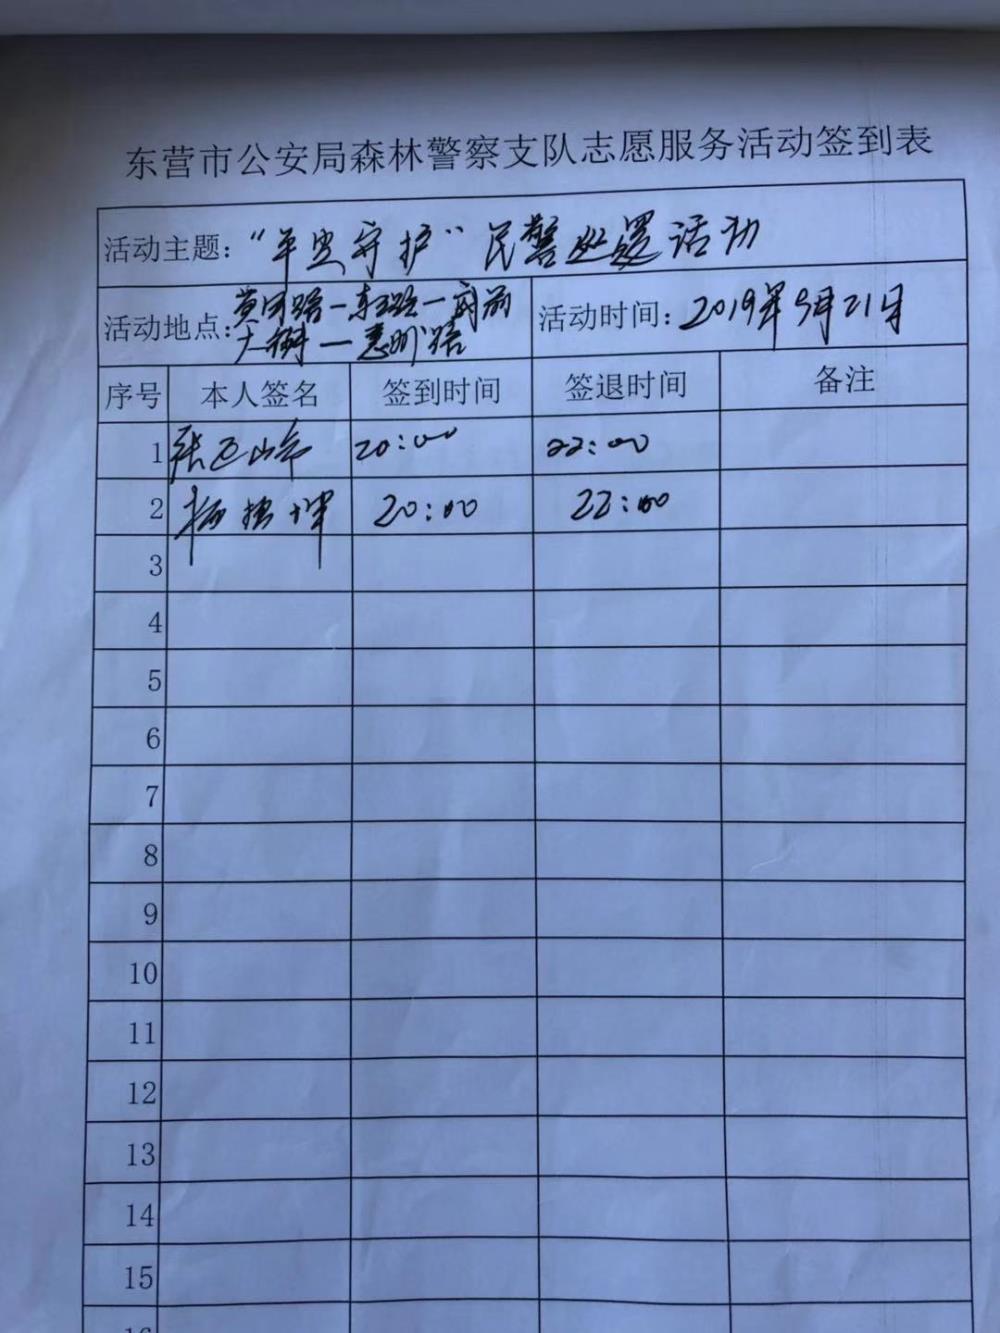 东营市公安局森林警察支队志愿服务活动签到表
活动主题：“平安守护”民警处置活动
活动地点：黄河路—东三路—府前
大街—惠州路
活动时间：2019年9月21日
序号 本人签名 签到时间 签退时间 备注
1 张 20:00 22:00
2 杨 20:00 22:00
3
4
5
6
7
8
9
10
11
12
13
14
15
16